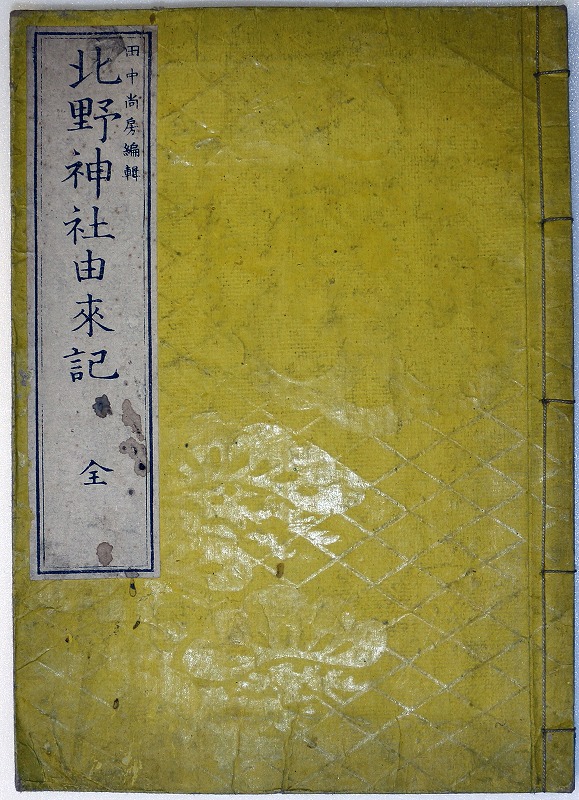 田中尚房編輯
北野神社由來記
全